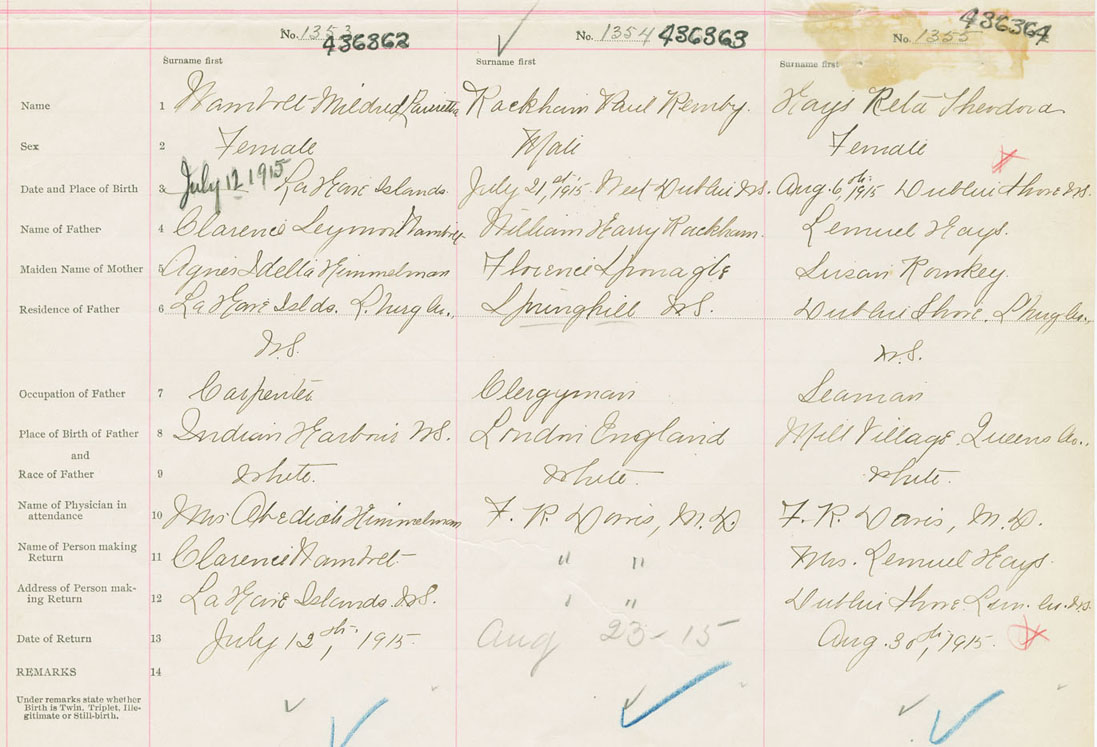 No. 1353 436362 No. 1354 436363 No. 1355 436364
Surname first Surname first Surname first
Name 1 Wambolt Mildred Rackham Paul Remby. Hays Reta Theodora
Sex 2 Female Male Female
Date and Place of Birth 3 July 12 1915 La Have Islands July 21st, 1915. West Dublin N.S. Aug. 6th, 1915 Dublin Shore N.S.
Name of Father 4 Clarence Seymour Wambolt William Harry Rackham. Lemuel Hays.
Maiden Name of Mother 5 Agnes Idella Himmelman Florence Sponagle Susan Romkey
Residence of Father 6 La Have Islds. L'burg Co., Springhill N.S. Dublin Shore. L'burg Co.,
N.S. N.S.
Occupation of Father 7 Carpenter Clergyman Seaman
Place of Birth of Father 8 Indian Harbour N.S. London England Mill Village. Queens Co.,
and
Race of Father 9 White. White. White.
Name of Physician in
attendance 10 Mrs Obediah Himmelman F. R. Davis, M.D. F. R. Davis, M.D.
Name of Person making
Return 11 Clarence Wambolt " " Mrs. Lemuel Hays.
Address of Person mak-
ing Return 12 La Have Islands. N.S. " " Dublin Shore Lun. Co. N.S.
Date of Return 13 July 12th, 1915. Aug 23-15 Aug. 30th, 1915.
REMARKS 14
Under remarks state whether
Birth is Twin, Triplet, Ille-
gitimate or Still-birth.